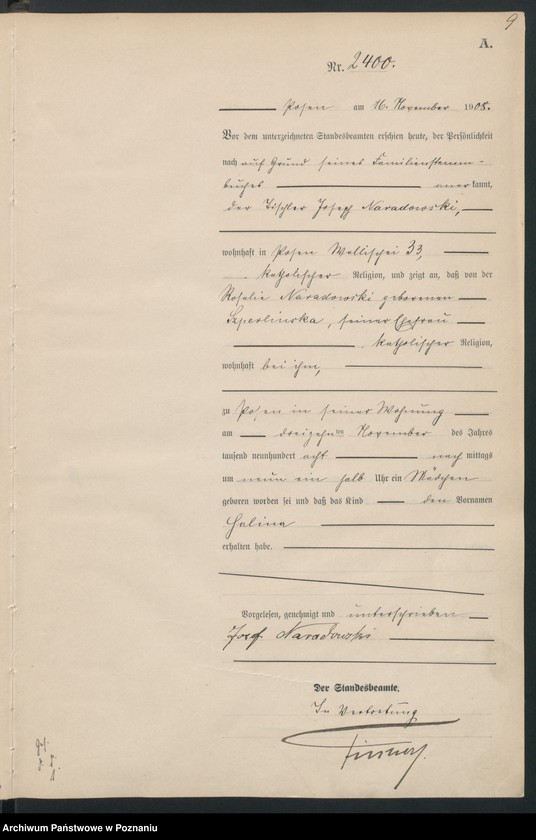 9
A.
Nr. 2400.
Posen am 16. November 1908.
Vor dem unterzeichneten Standesbeamten erschien heute, der Persönlichkeit
nach auf Grund seines Familienstamm-
buches anerkannt,
der Tischler Joseph Naradowski,
wohnhaft in Posen Wallischei 33,
katholischer Religion, und zeigt an, daß von der
Rosalie Naradowski geborenen
Szperlinska, seiner Ehefrau
katholischer Religion,
wohnhaft bei ihm,
zu Posen in seiner Wohnung
am dreizehnten November des Jahres
tausend neunhundert acht nachmittags
um neun ein halb Uhr ein Mädchen
geboren worden sei und daß das Kind den Vornamen
Halina
erhalten habe.
Vorgelesen, genehmigt und unterschrieben
Josef Naradowski
Der Standesbeamte.
In Vertretung
Archiwum Państwowe w Poznaniu